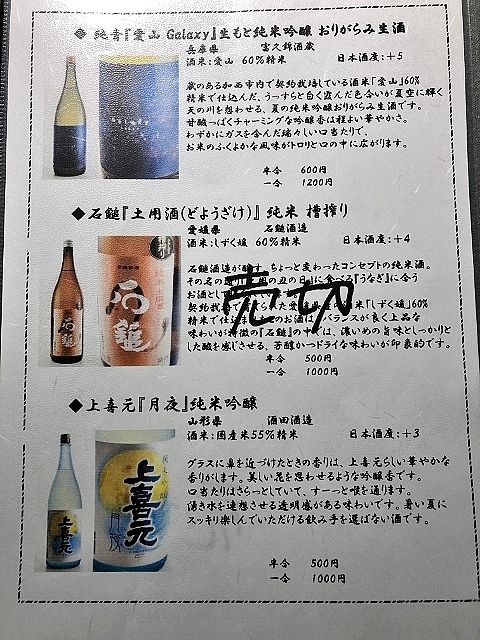 ◆ 純青『愛山 Galaxy』生もと純米吟醸 おりがらみ生酒
兵庫県 富久錦酒蔵
酒米：愛山 60%精米 日本酒度：+5
蔵のある加西市内で契約栽培している酒米「愛山」60%
精米で仕込んだ、うっすらと白く霞んだ色合いが夏空に輝く
天の川を想わせる、夏の純米吟醸おりがらみ生酒です。
甘酸っぱくチャーミングな吟醸香は程よい華やかさ。
わずかにガスを含んだ瑞々しい口当たりで、
お米のふくよかな風味がトロリと口の中に広がります。
半合 600円
一合 1200円
◆石鎚『土用酒(どようざけ)』 純米 槽搾り
愛媛県 石鎚酒造
酒米：しずく媛 60%精米 日本酒度：+4
石鎚酒造が醸す、ちょっと変わったコンセプトの純米酒。
その名の の丑の日』に食べる『うなぎ』に合う
お酒とし
契約栽培 米「しずく媛」60%
精米で仕込 のお酒は、バランスが良く上品な
味わいが特徴の『石鎚』の中では、濃いめの旨味としっかりと
した酸を感じさせる、芳醇かつドライな味わいが印象的です。
売切
半合 500円
一合 1000円
石鎚
◆上喜元『月夜』純米吟醸
山形県 酒田酒造
酒米：国産米55%精米 日本酒度：+3
グラスに鼻を近づけたときの香りは、上喜元らしい華やかな
香りがします。美しい花を思わせるような吟醸香です。
口当たりはさらっとしていて、すーっと喉を通ります。
湧き水を連想させる透明感がある味わいです。暑い夏に
スッキリ楽しんでいただける飲み手を選ばない酒です。
半合 500円
一合 1000円
上喜元
上喜元
月夜